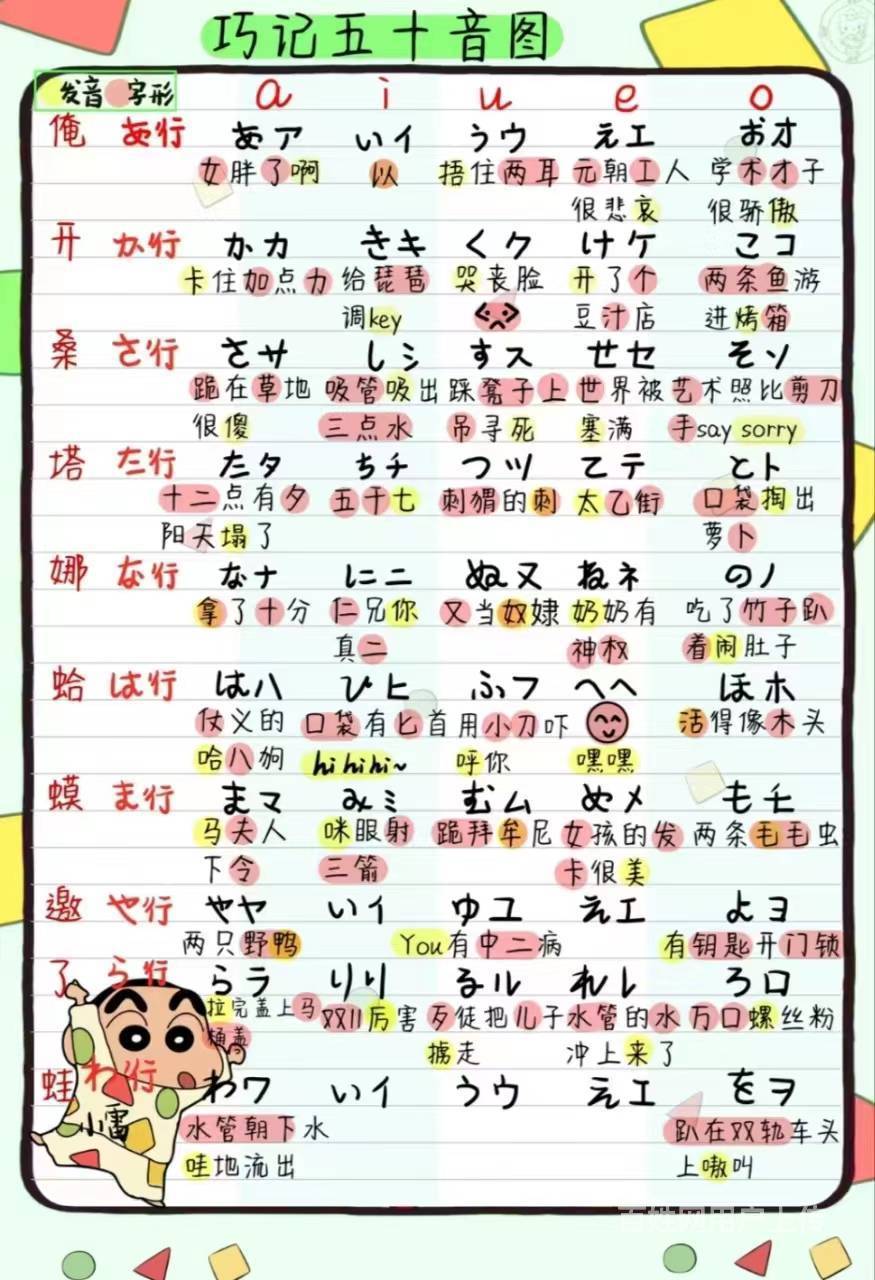 巧记五十音图
发音 字形 a i u e o
俺 あ行 あア いイ うウ えエ おオ
女胖了啊 以 捂住两耳 元朝工人 学术才子
很悲哀 很骄傲
开 か行 かカ きキ くク けケ こコ
卡住加点力 给琵琶 哭丧脸 开了个 两条鱼游
调key 豆汁店 进烤箱
桑 さ行 さサ しシ すス せセ そソ
跪在草地 吸管吸出 踩凳子上 世界被 艺术照比剪刀
很傻 三点水 吊寻死 塞满 手say sorry
塔 た行 たタ ちチ つツ てテ とト
十二点有夕 五千七 刺猬的刺 太乙街 口袋掏出
阳天塌了 萝卜
娜 な行 なナ にニ ぬヌ ねネ のノ
拿了十分 仁兄你 又当奴婢 奶奶有 吃了竹子趴
真二 神权 着闹肚子
蛤 は行 はハ ひヒ ふフ へヘ ほホ
仗义的 口袋有匕首 用小刀吓 活得像木头
哈八狗 hi hi hi~ 呼你 嘿嘿
蟆 ま行 まマ みミ むム めメ もモ
马夫人 咪眼射 跪拜牟尼 女孩的发 两条毛毛虫
下令 三箭 卡很美
邀 や行 やヤ いイ ゆユ えエ よヨ
两只野鸭 You有中二病 有钥匙开门锁
了 ら行 らラ りリ るル れレ ろロ
拉完盖上马 双刂厉害 歹徒把儿子 水管的水 万口螺丝粉
桶盖 掳走 冲上来了
蛙 わ行 わワ いイ うウ えエ をヲ
小雷
水管朝下水 趴在双轨车头
哇地流出 上嗷叫
百姓网用户上传